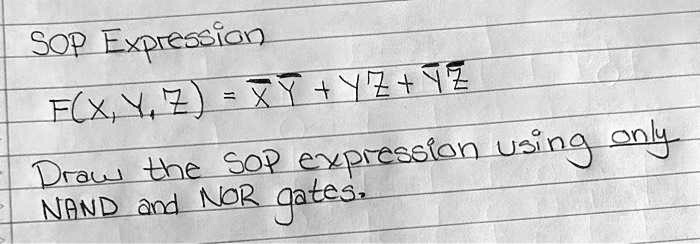 SOP Expression
F(X, Y, Z) = X̅ Y̅ + YZ + Y̅ Z̅
Draw the SOP expression using only
NAND and NOR gates.